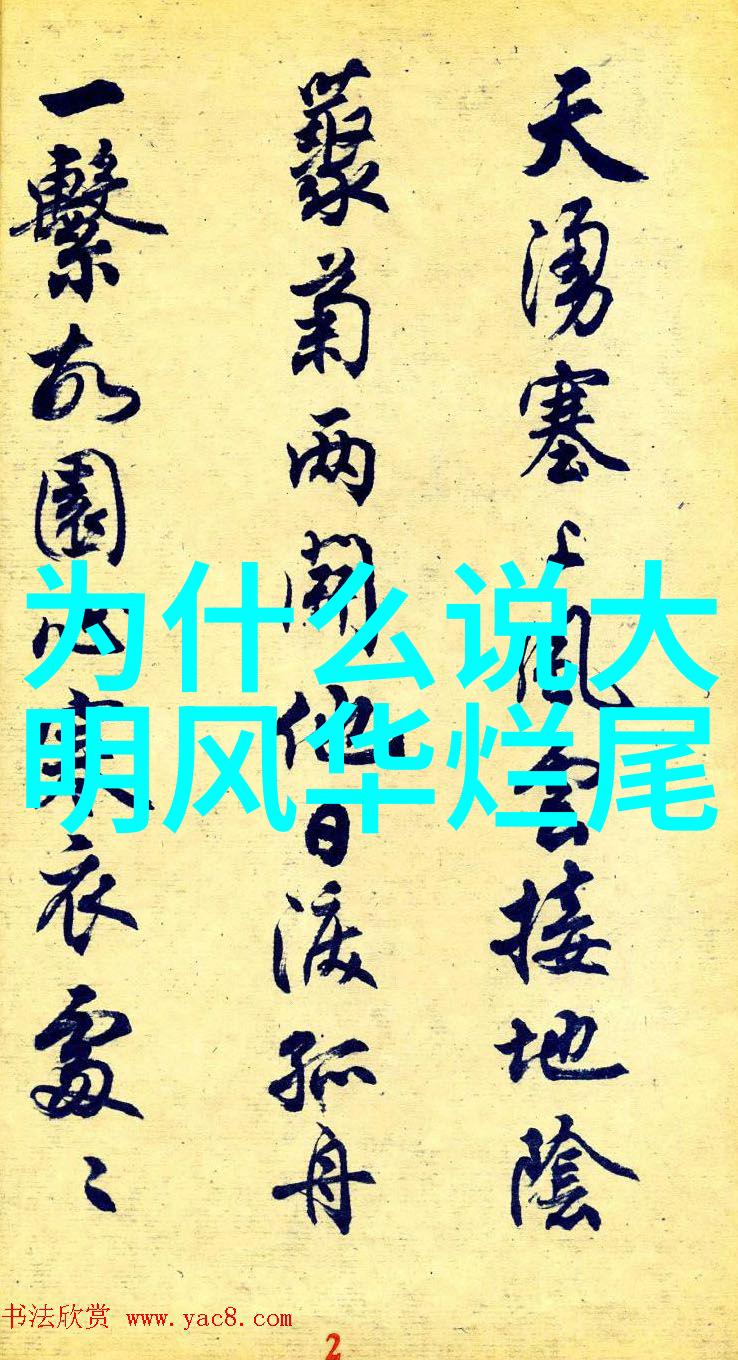 天湧塞上風雲接地陰
叢菊两開他日淚孤舟
一繫故園心寒衣處〻
为什么说大
明风华烂尾
书法欣赏 www.yac8.com
2